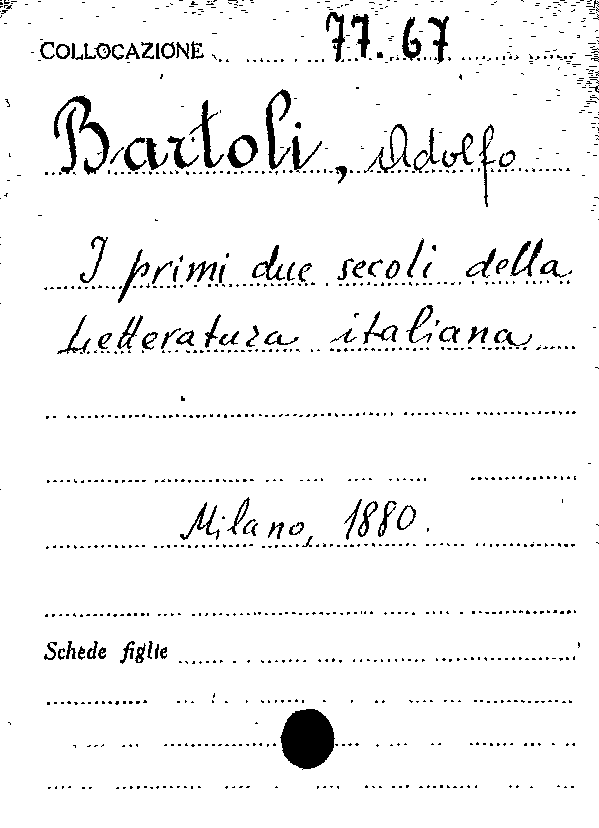 COLLOCAZIONE 77.67
Bartoli, Adolfo
I primi due secoli della
Letteratura italiana
Milano, 1880.
Schede figlie